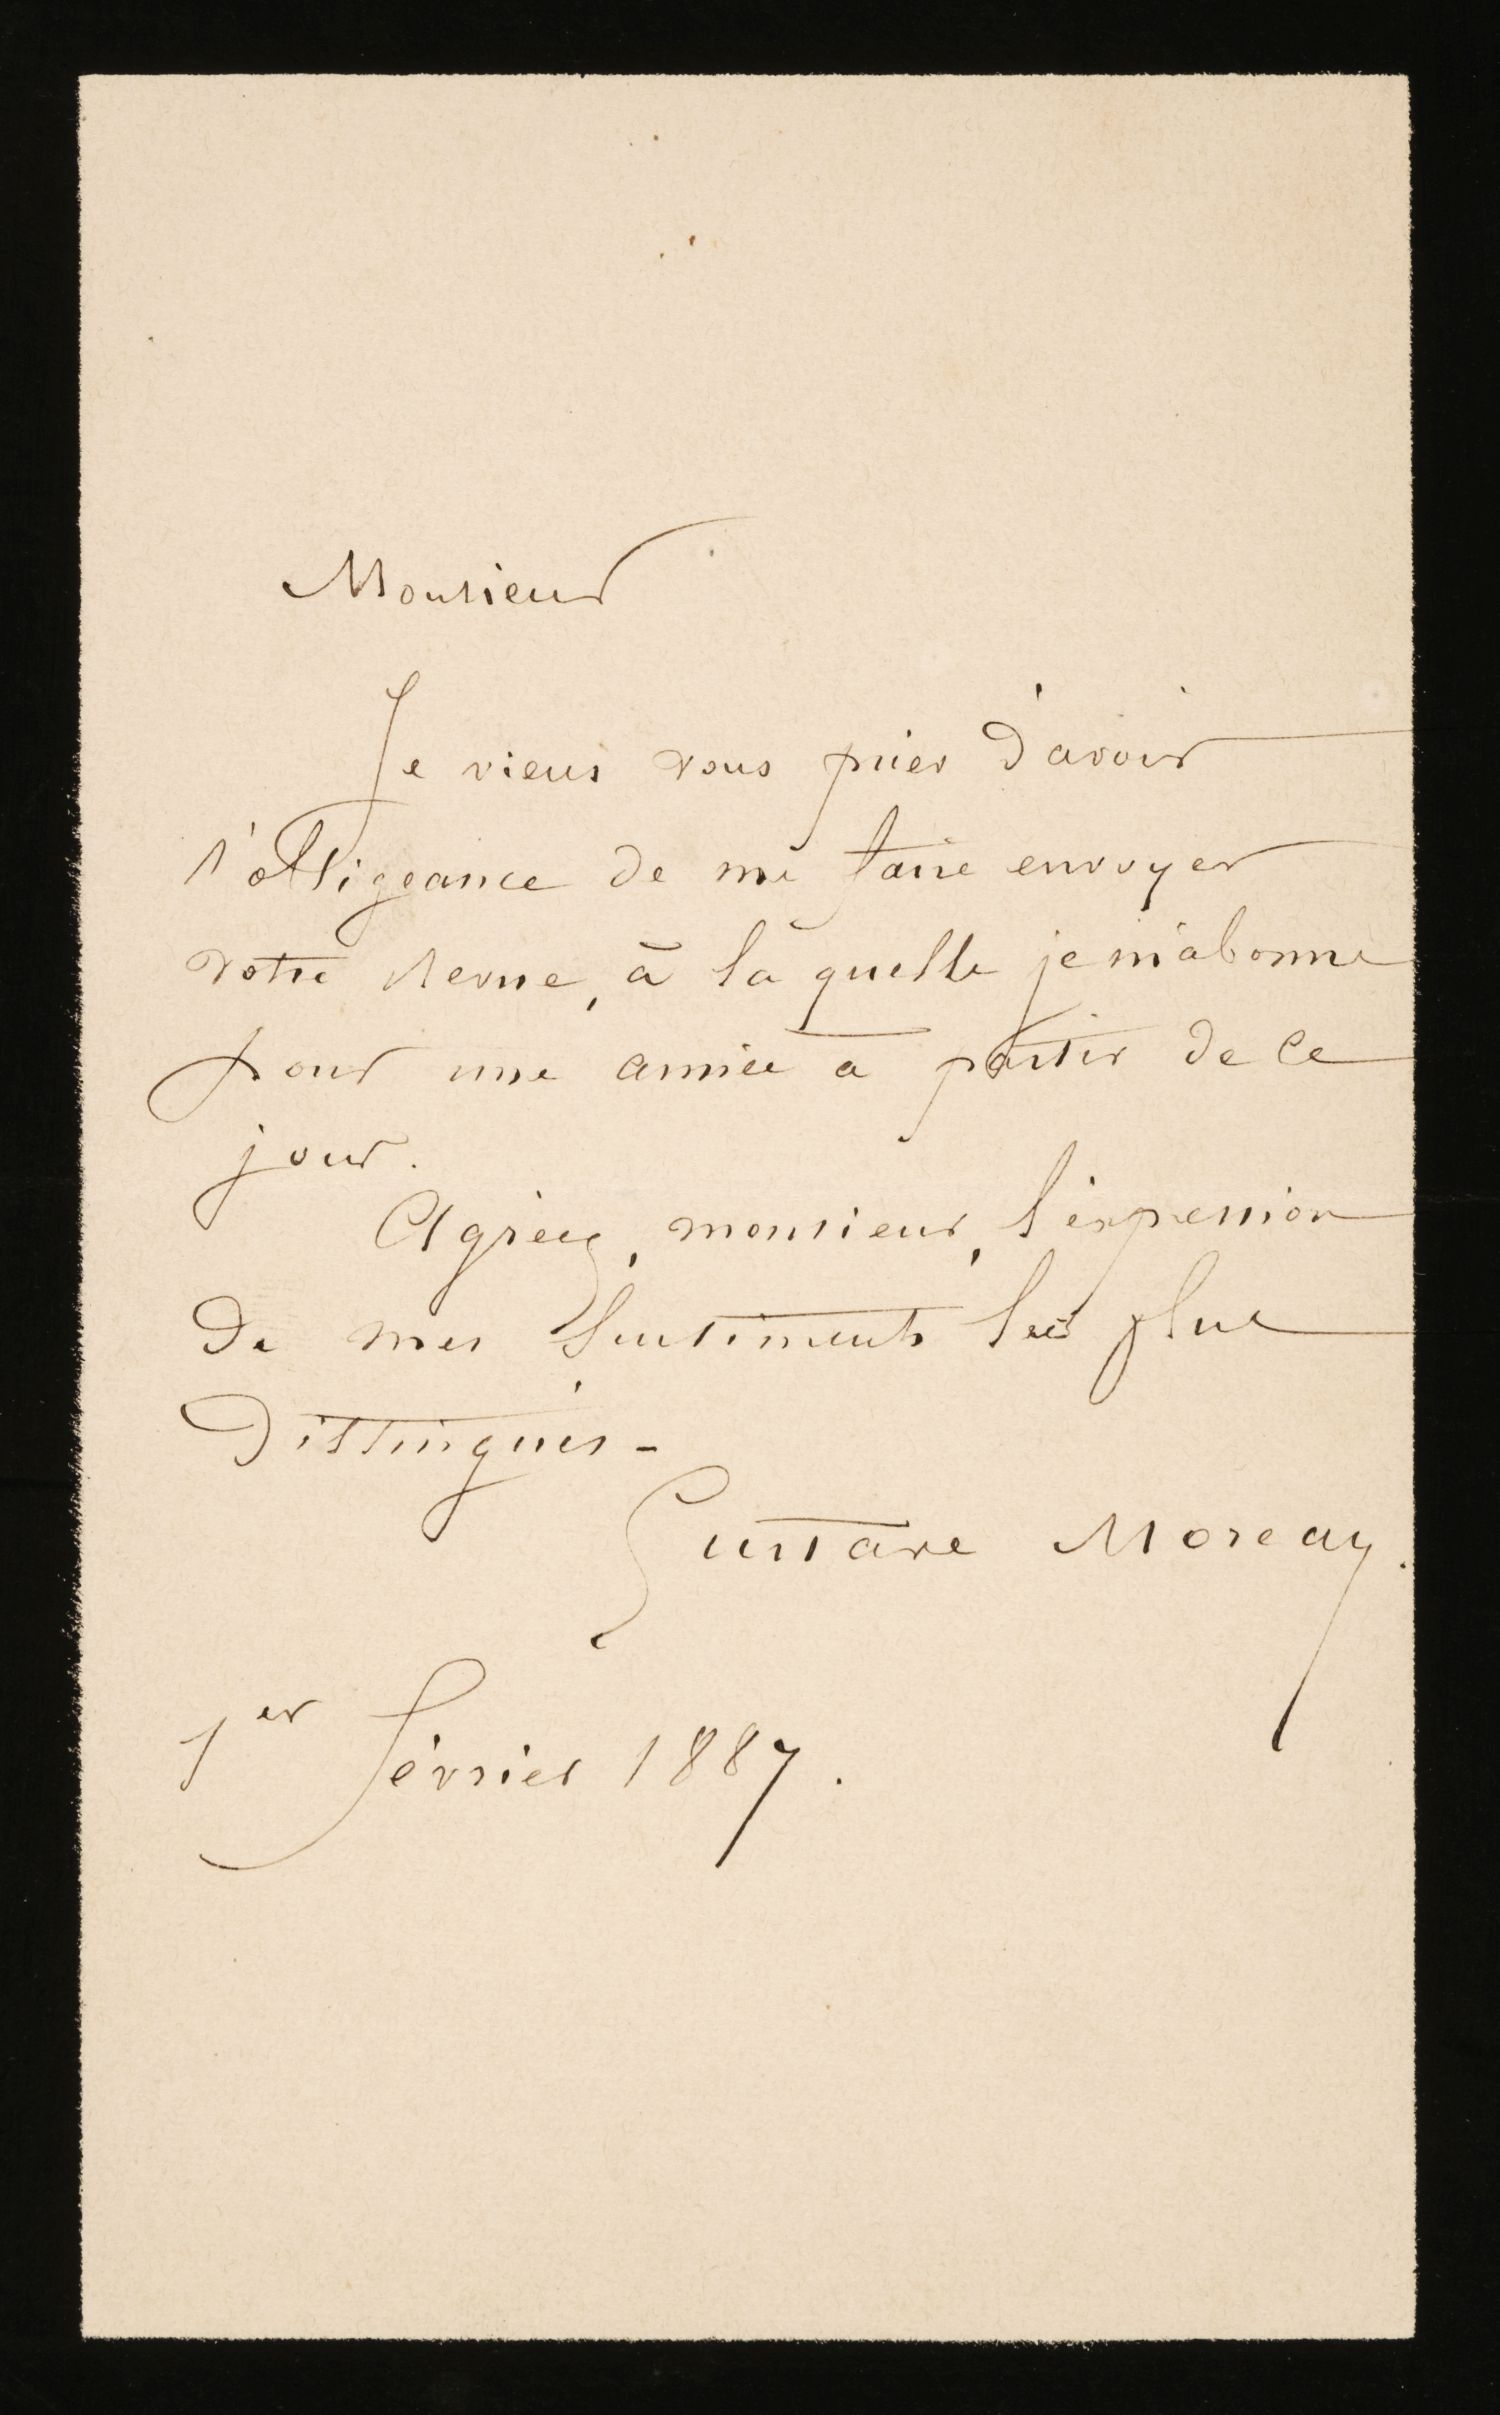 Monsieur
Je viens vous prier d'avoir
l'obligeance de me faire envoyer
votre Revue, à la quelle je m'abonne
pour une année à partir de ce
jour.
Agréez, monsieur, l'expression
de mes sentiments les plus
distingués -
Gustave Moreau.
1er février 1887.